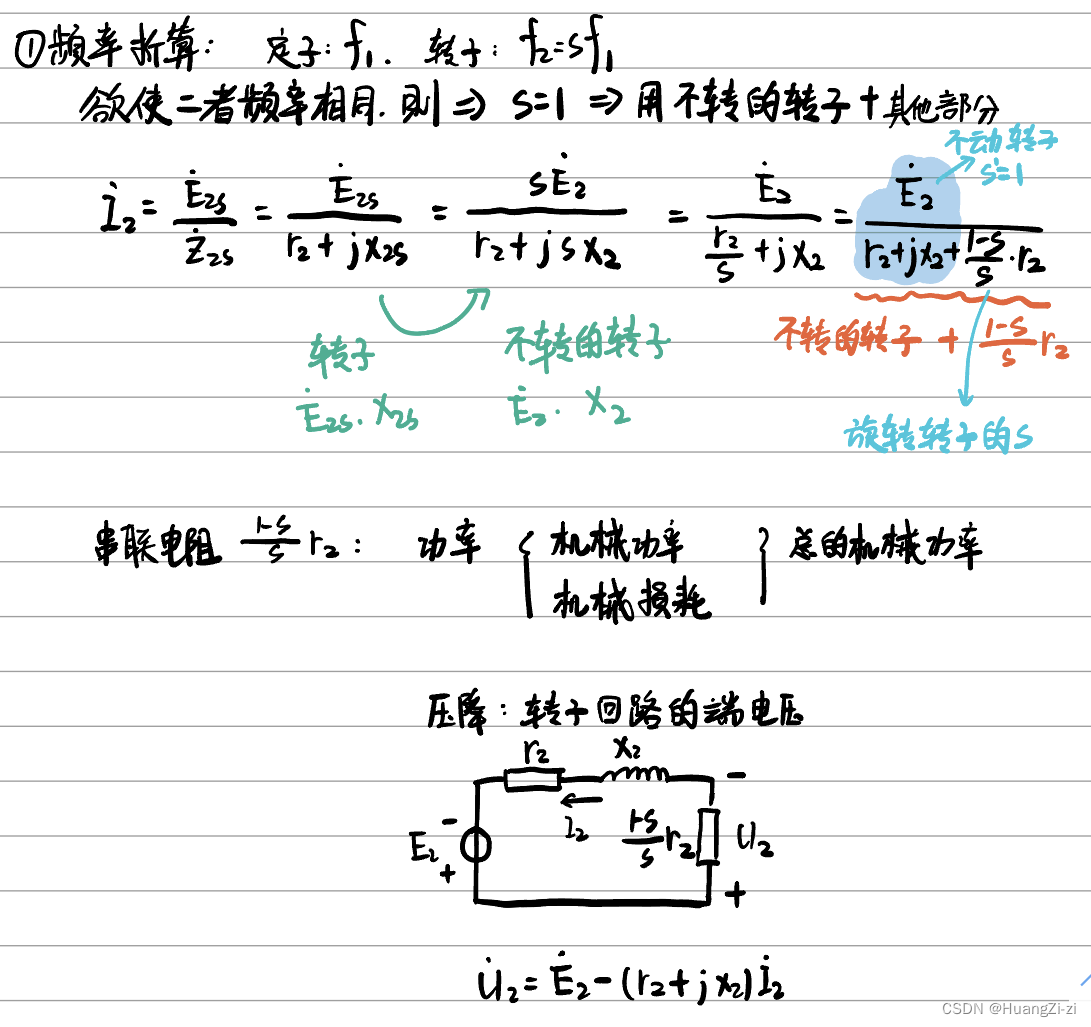 ①频率折算: 定子: f₁. 转子: f₂=sf₁
欲使二者频率相同. 则 ⇒ s=1 ⇒ 用不转的转子 + 其他部分
不动转子
s=1
İ₂ = Ė₂s / Ż₂s = Ė₂s / (r₂+jx₂s) = sĖ₂ / (r₂+jsx₂) = Ė₂ / (r₂/s + jx₂) = Ė₂ / (r₂+jx₂+(1-s)/s·r₂)
转子 不转的转子 不转的转子 + (1-s)/s r₂
Ė₂s. x₂s Ė₂. x₂ 旋转转子的s
串联电阻 (1-s)/s r₂: 功率 { 机械功率 } 总的机械功率
机械损耗
压降: 转子回路的端电压
r₂ x₂ -
- I₂ (1-s)/s r₂ U₂
E₂
+ +
U̇₂ = Ė₂ - (r₂+jx₂)İ₂
CSDN @HuangZi-zi